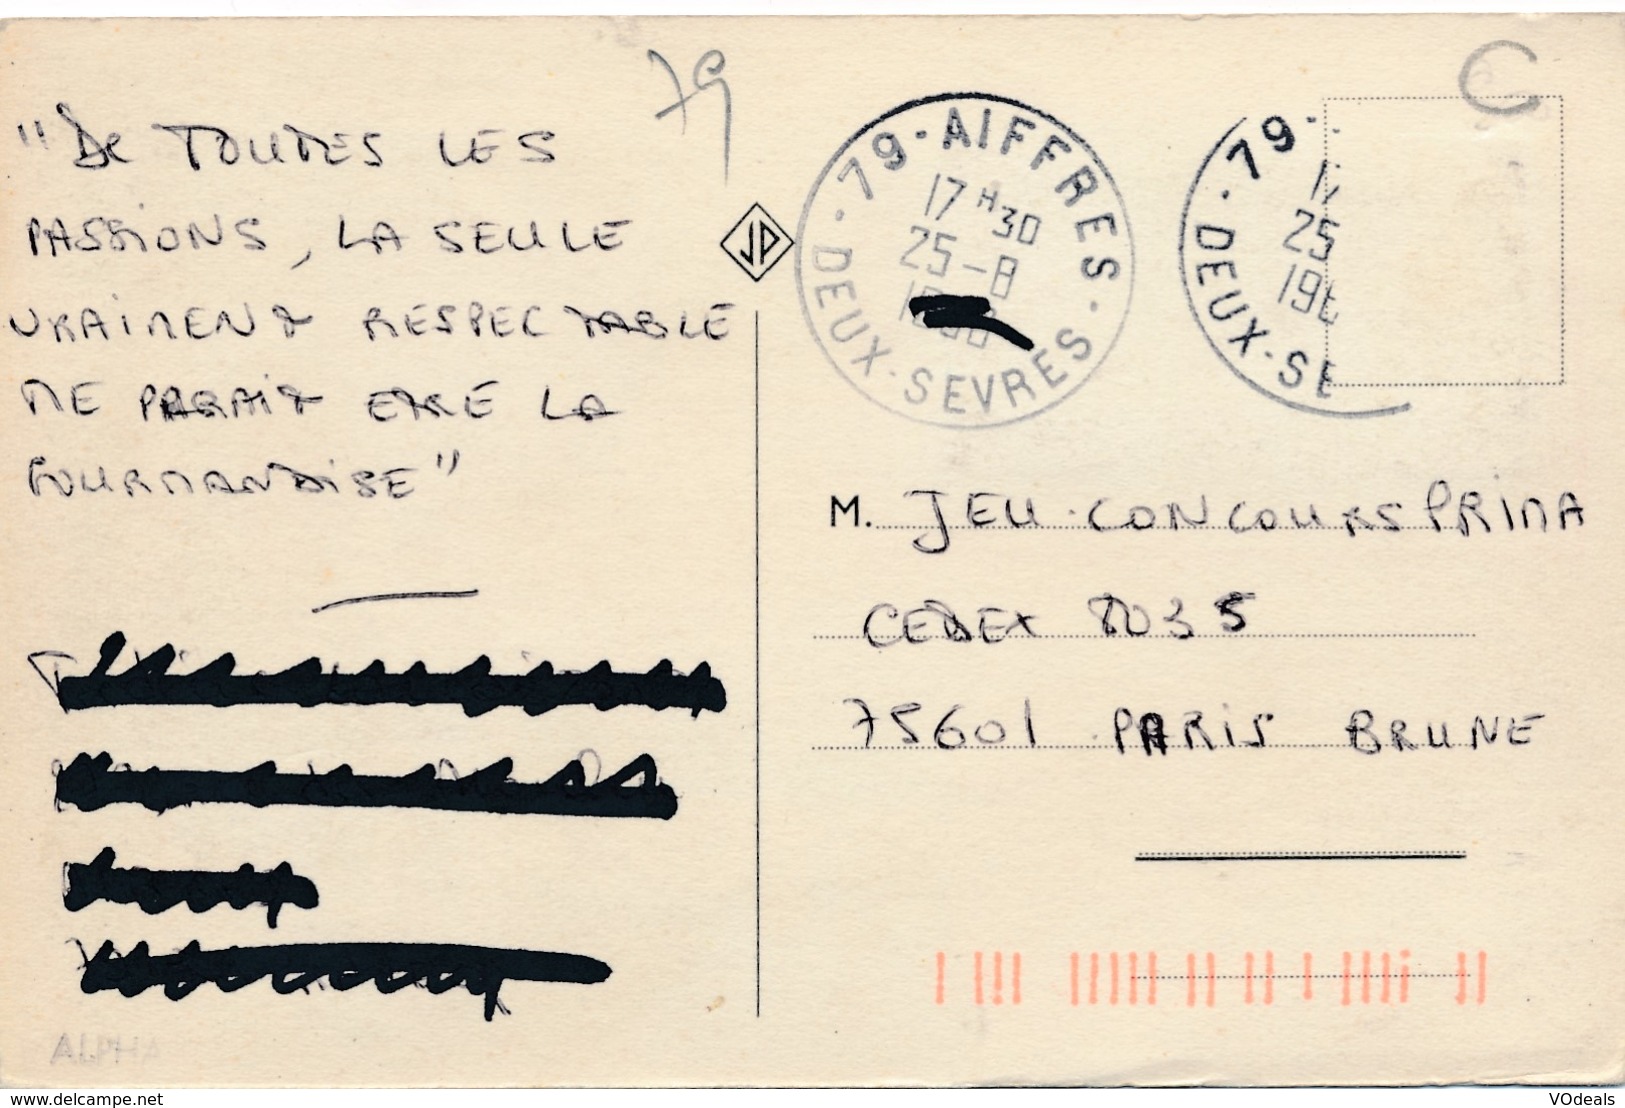 79
C
"De TOUTES LES
PASSIONS, LA SEULE
VRAIMENT RESPECTABLE
ME PARAIT ETRE LA
GOURMANDISE"
79-AIFFRES
17H30
25-8
DEUX-SEVRES
79
25
DEUX-SE
JP
M. JEU-CONCOURS PRIMA
CEDEX 8035
75601 PARIS BRUNE
ALPHA
www.delcampe.net
VOdeals